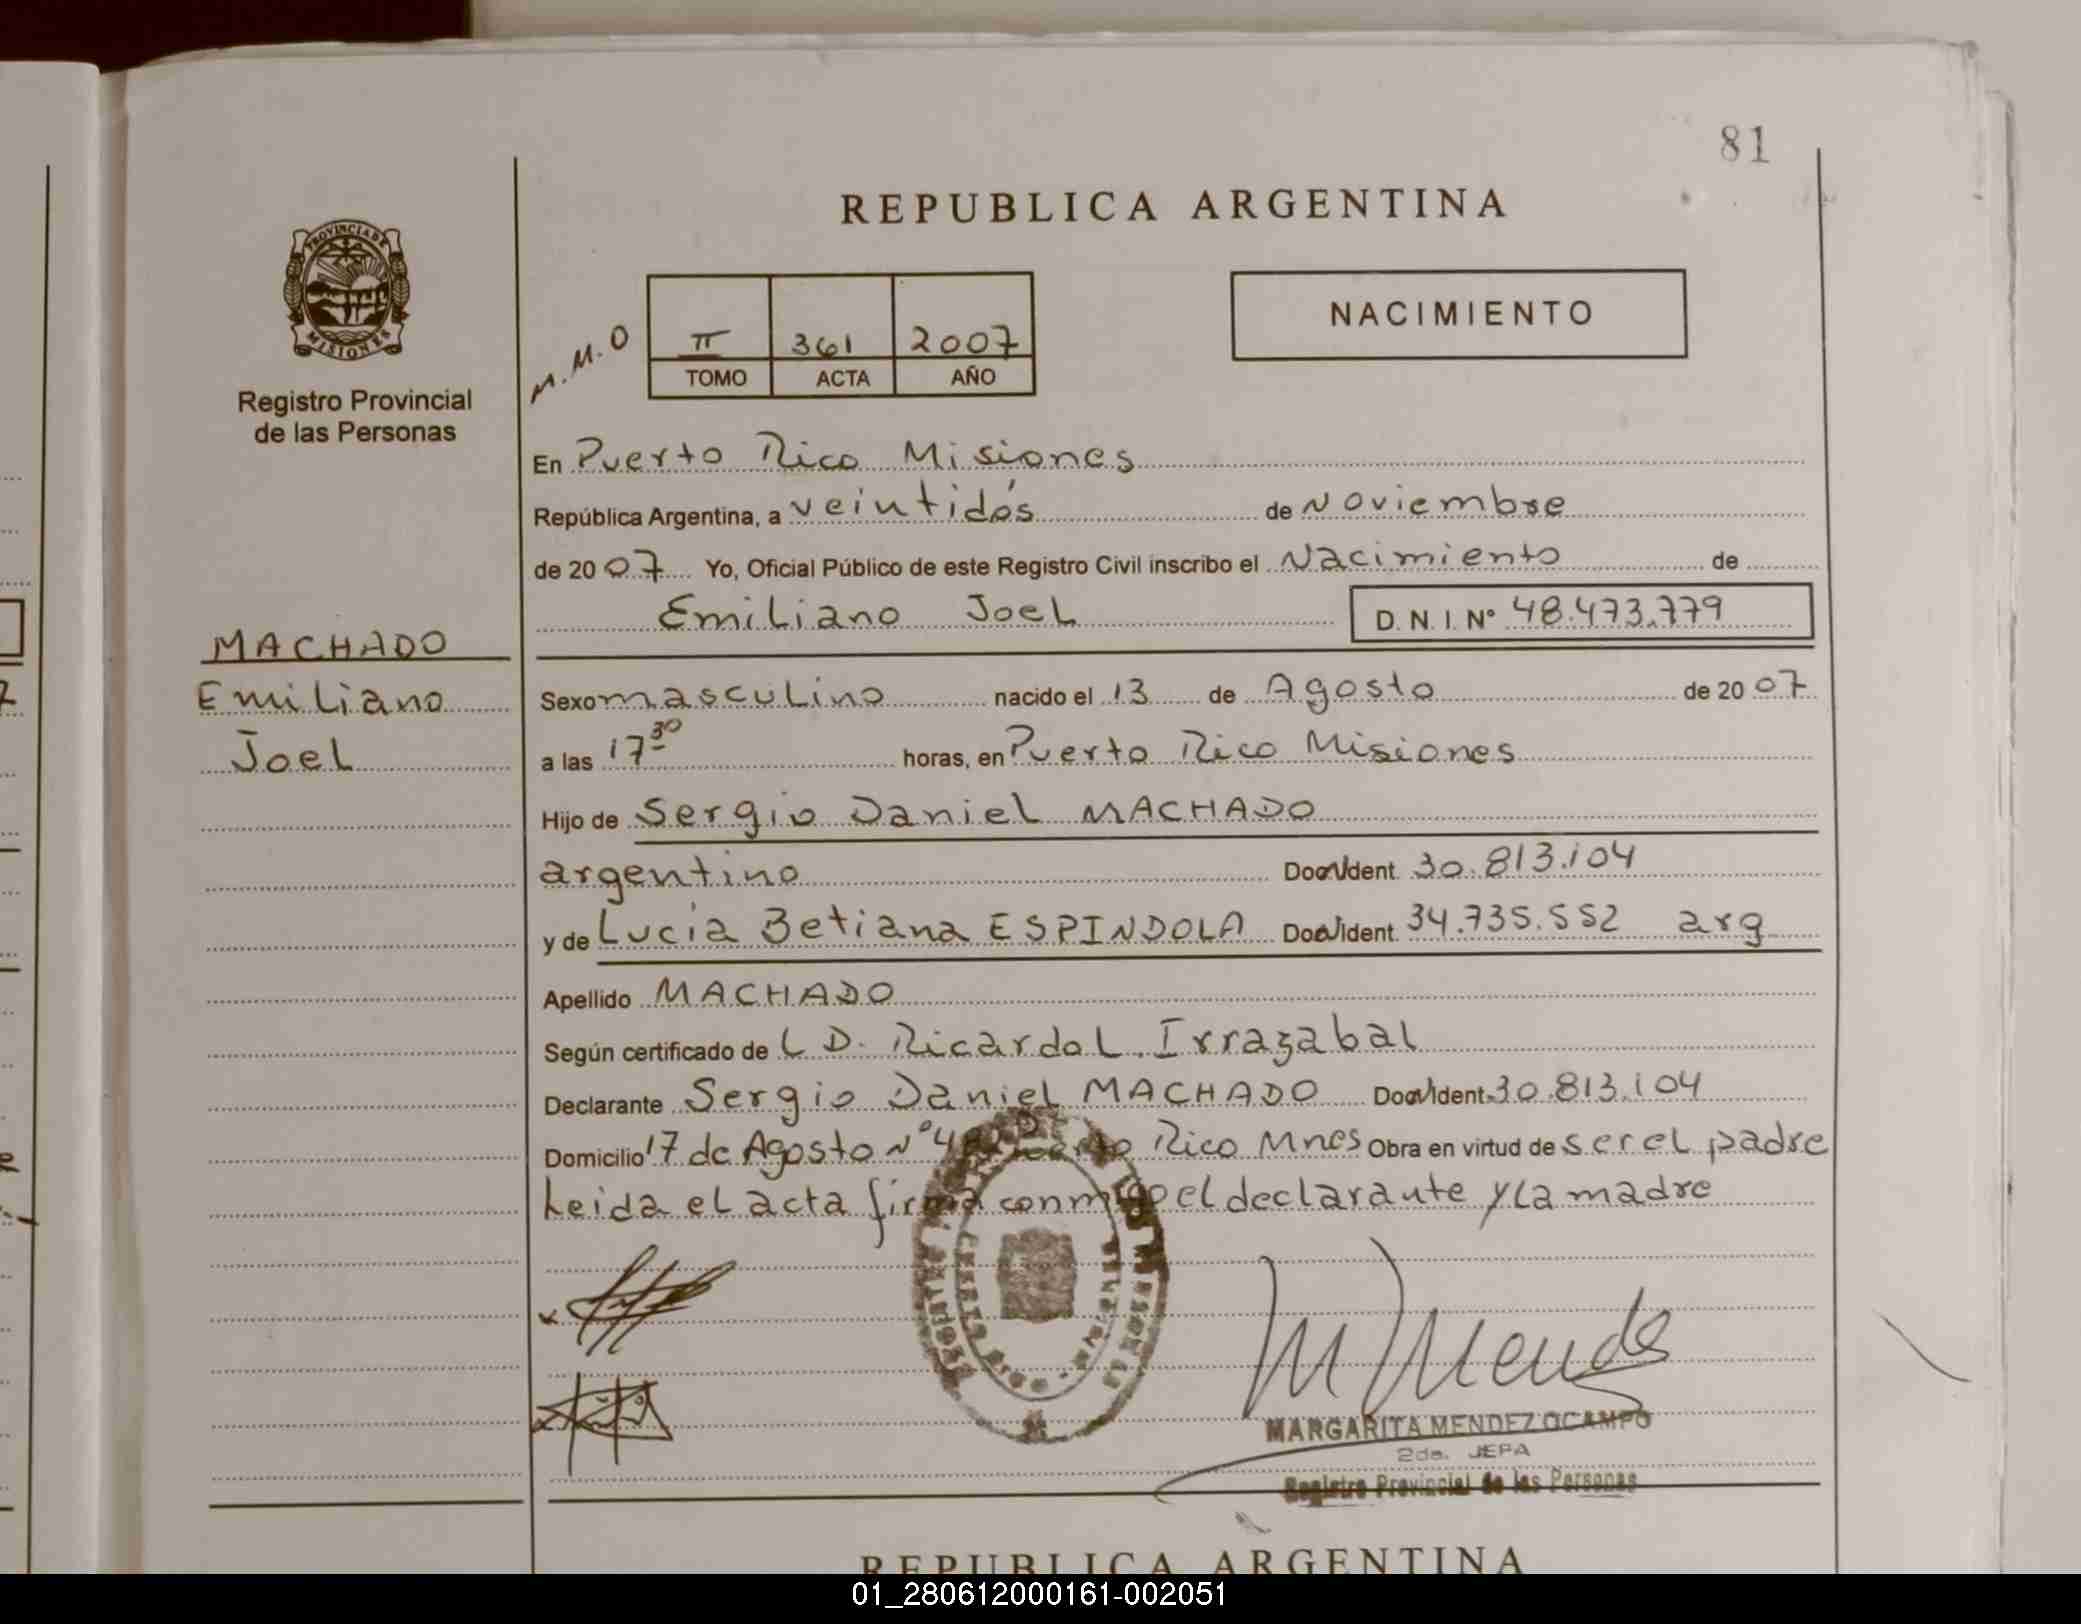 81
REPUBLICA ARGENTINA
PROVINCIA DE
MISIONES
Registro Provincial
de las Personas
M.M.O
II 361 2007
TOMO ACTA AÑO
NACIMIENTO
En Puerto Rico Misiones
República Argentina, a veintidós de Noviembre
de 2007 Yo, Oficial Público de este Registro Civil inscribo el Nacimiento de
Emiliano Joel D.N.I. Nº 48.473.779
MACHADO
Emiliano
Joel
Sexo masculino nacido el 13 de Agosto de 2007
a las 17 30 horas, en Puerto Rico Misiones
Hijo de Sergio Daniel MACHADO
argentino Doc. Ident. 30.813.104
y de Lucia Betiana ESPINDOLA Doc. Ident. 34.735.552 arg
Apellido MACHADO
Según certificado de L D. Ricardo L. Irrazabal
Declarante Sergio Daniel MACHADO Doc. Ident. 30.813.104
Domicilio 17 de Agosto Nº Puerto Rico Mnes Obra en virtud de ser el padre
Leida el acta firma conmigo el declarante y la madre
M Mendez
MARGARITA MENDEZ OCAMPO
2da. JEFA
Registro Provincial de las Personas
REPUBLICA ARGENTINA
01_280612000161-002051